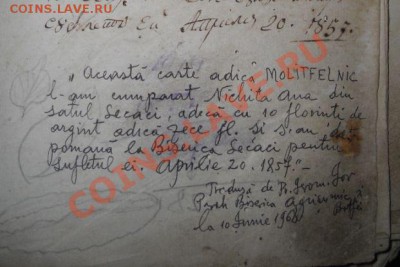 COINS.LAVE.RU
Aprilie 20. 1857.
"Această carte adică MOLITFELNIC
l-am cumparat Nichita Ana din
satul Secaci, adecă cu 10 florinti de
argint adică zece fl. si s-au dat
pomană la Biserica Secaci pentru
sufletul ei. Aprilie 20. 1857."-
Tradusă de Pr.
Paroh Biserica
la 10 Iunie 1968
COINS.LAVE.RU